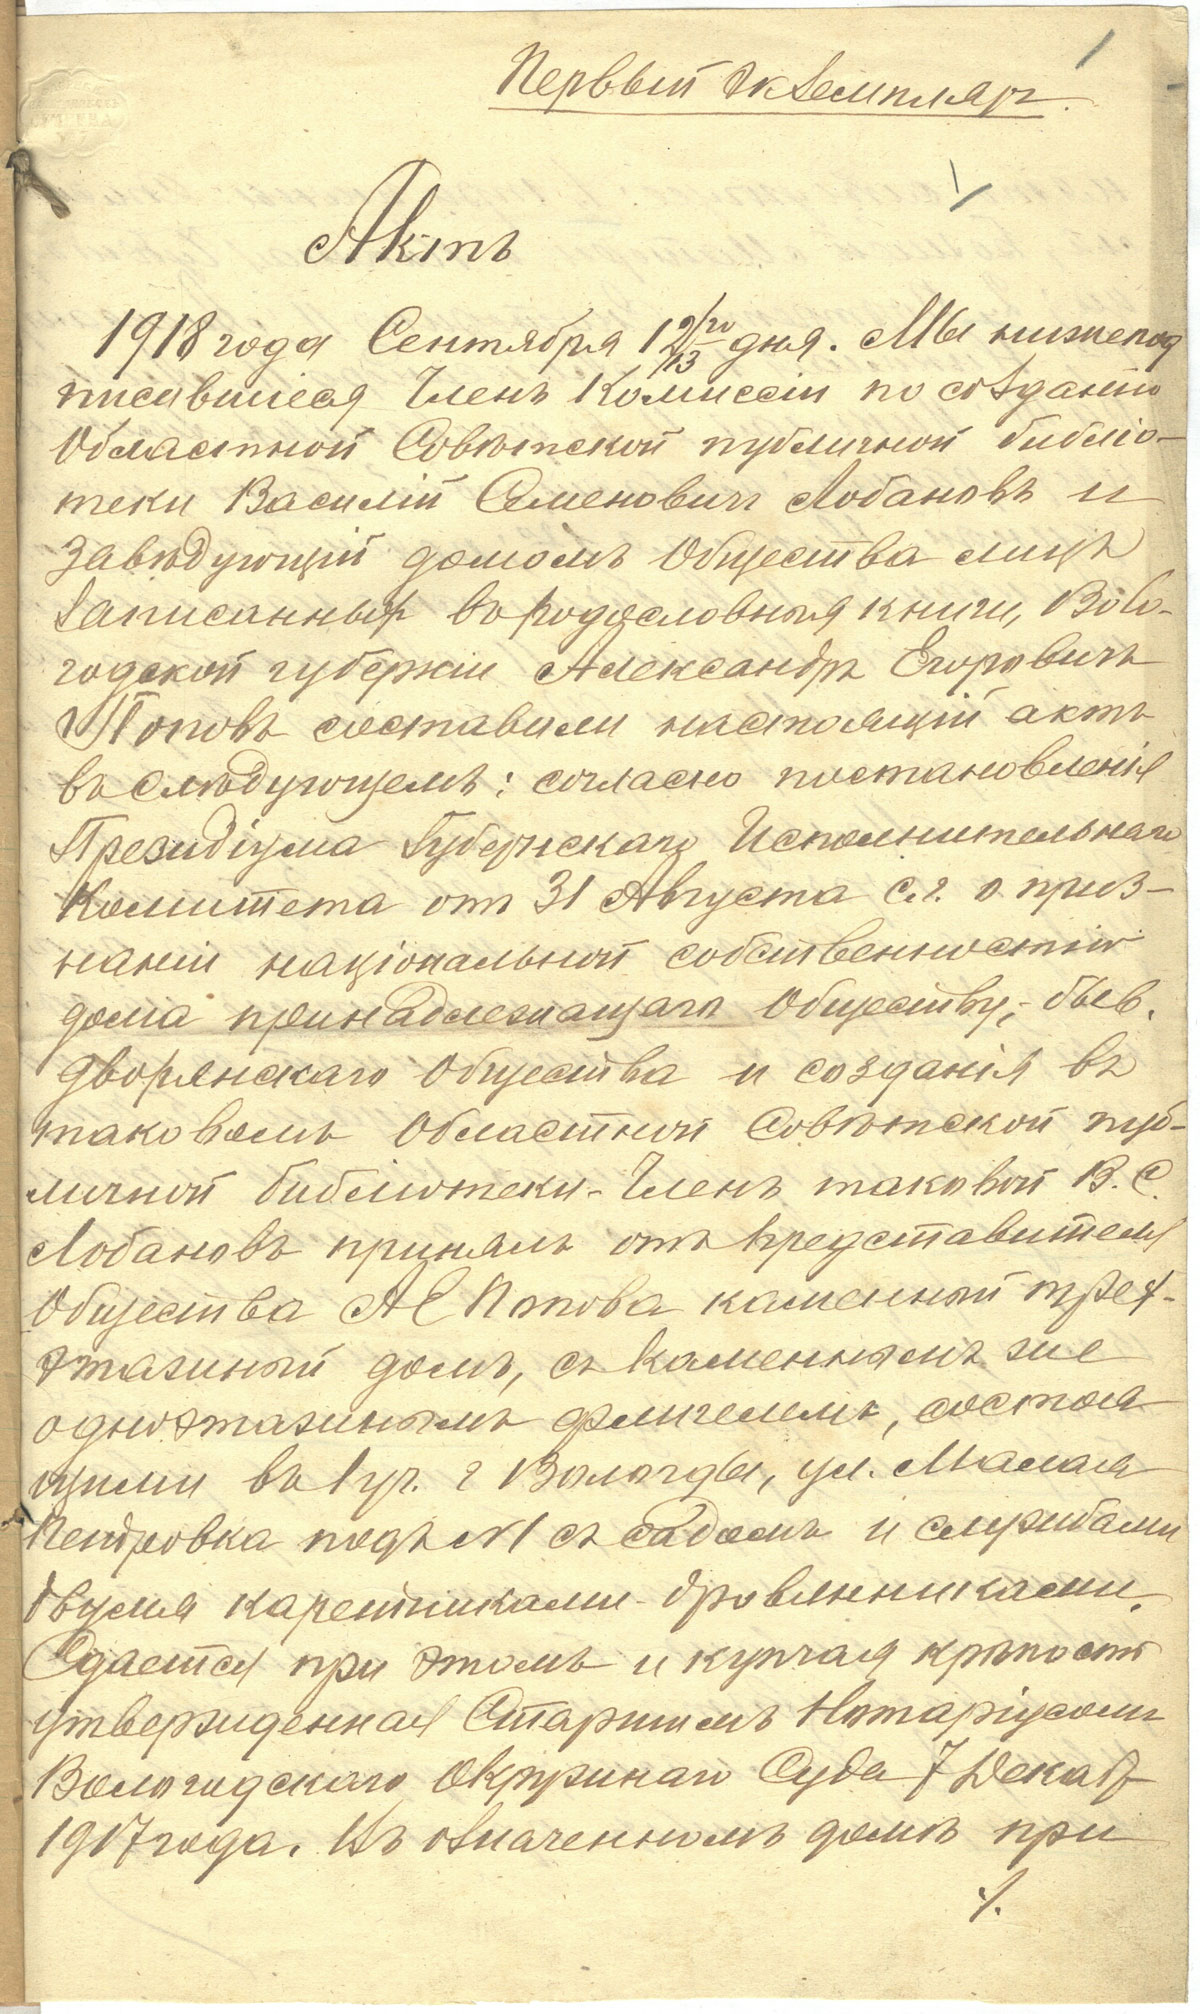 Первый экземпляръ.
Актъ
1918 года Сентября 12/13 дня. Мы нижепод
писавшіеся Членъ Комиссіи по созданію
Областной Совѣтской публичной библіо-
теки Василій Семеновичъ Лобановъ и
Завѣдующій домомъ Общества лицъ
записанных въ родословныя книги, Воло-
годской губерніи Александръ Егоровичъ
Поповъ составили настоящій актъ
въ слѣдующемъ: согласно постановленія
Президіума Губернскаго Исполнительнаго
Комитета отъ 31 Августа с.г. о приз-
наніи національной собственностію
дома принадлежащаго Обществу, бывш.
дворянскаго Общества и созданія въ
таковомъ Областной Совѣтской пуб-
личной библіотеки - Членъ таковой В. С.
Лобановъ принялъ отъ представителя
Общества А Е Попова каменный трех-
этажный домъ, съ каменнымъ же
одноэтажнымъ флигелемъ, состоя
щими въ 1 уч. г Вологды, ул. Малая
Петровка подъ №1 съ садомъ и службами
двумя каретниками-дровянниками.
Сдается при этомъ и купчая крѣпость
утвержденная Старшимъ Нотаріусомъ
Вологодскаго Окружнаго Суда 7 Декаб
1917 года. Въ означенномъ домѣ при
./.